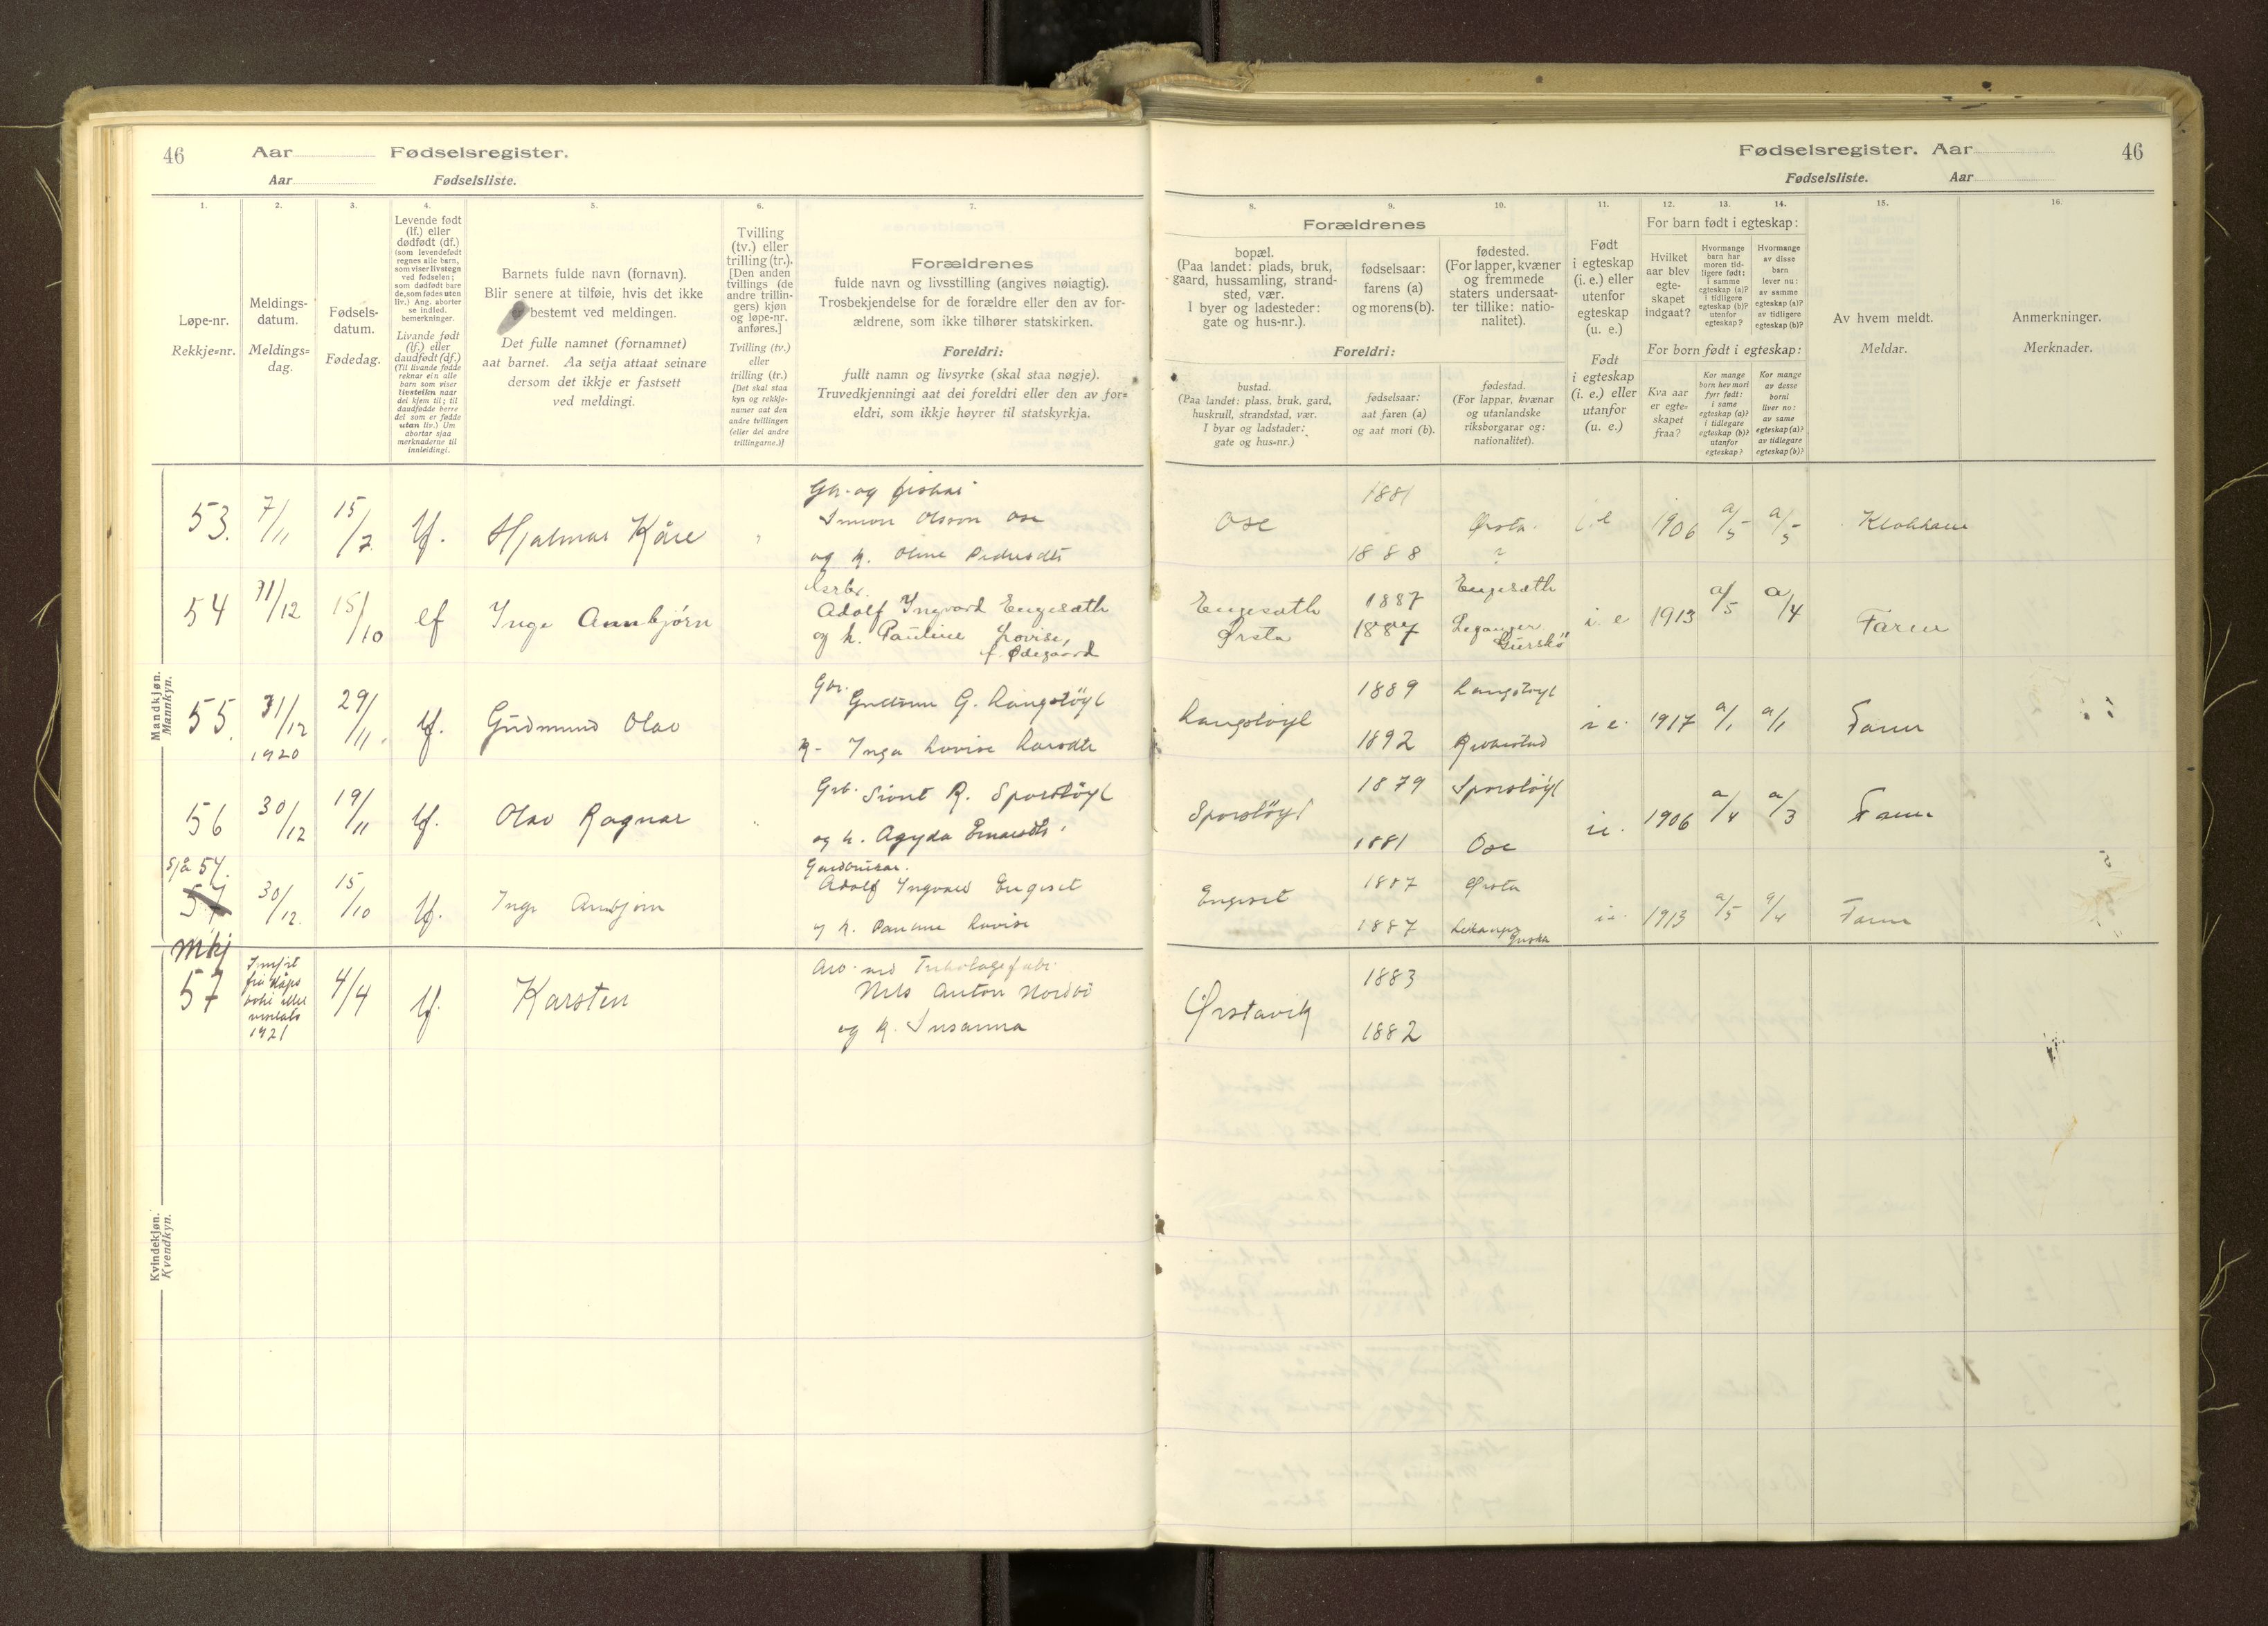 46 Aar Fødselsregister.
Aar Fødselsliste.
1.
Løpe-nr.
Rekkje=nr.
2.
Meldings-
datum.
Meldings=
dag.
3.
Fødsels-
datum.
Fødedag.
4.
Levende født
(lf.) eller
dødfødt (df.)
(som levendefødt
regnes alle barn,
som viser livstegn
ved fødselen;
som dødfødt bare
de, som fødes uten
liv.) Ang. aborter
se indled.
bemerkninger.
Livande født
(lf.) eller
daudfødt (df.)
(Til livande fødde
reknar ein alle
barn som viser
livsteikn naar
dei kjem til; til
daudfødde berre
dei som er fødde
utan liv.) Um
abortar sjaa
merknaderne til
innleidingi.
5.
Barnets fulde navn (fornavn).
Blir senere at tilføie, hvis det ikke
er bestemt ved meldingen.
Det fulle namnet (fornamnet)
aat barnet. Aa setja attaat seinare
dersom det ikkje er fastsett
ved meldingi.
6.
Tvilling
(tv.) eller
trilling (tr.).
[Den anden
tvillings (de
andre trillin-
gers) kjøn
og løpe-nr.
anføres.]
Tvilling (tv.)
eller
trilling (tr.)
[Det skal staa
kyn og rekkje-
numer aat den
andre tvillingen
(eller dei andre
trillingarne.)]
7.
Forældrenes
fulde navn og livsstilling (angives nøiagtig).
Trosbekjendelse for de forældre eller den av for-
ældrene, som ikke tilhører statskirken.
Foreldri:
fullt namn og livsyrke (skal staa nøgje).
Truvedkjenningi aat dei foreldri eller den av for=
eldri, som ikkje høyrer til statskyrkja.
Mandkjøn.
Mannkyn.
53. 7/11 15/7 lf. Hjalmar Kåre
Gbr. og fisker
Simon Olsson Ose
og k. Oline Pedersdtr
54 31/12 15/10 lf Inge Annbjørn
Adolf Ingvard Engesæth
og h. Pauline Lovise,
f. Ødegaard
55. 31/12 1920 29/11. lf. Gudmund Olav
Gbr.
G. Langstøyl
k- Inga Lovise Larsdtr
56 30/12 19/11 lf. Olav Ragnar
Grb. Sivert R. Sporstøyl
og k.
Sjå 54.
57 30/12. 15/10 lf. Inge Annbjørn
Gardbrukar.
Adolf Ingvald Engeset
og k. Pauline Lovise
mkj
57 1921 4/4 lf. Karsten
Nils Anton Nordbø
og k. Susanna
Kvindekjøn.
Kvendkyn.
Fødselsregister. Aar 46
Fødselsliste. Aar
8.
Forældrenes
bopæl.
(Paa landet: plads, bruk,
gaard, hussamling, strand-
sted, vær.
I byer og ladesteder:
gate og hus-nr.).
Foreldri:
bustad.
(Paa landet: plass, bruk, gard,
huskrull, strandstad, vær.
I byar og ladstader:
gate og hus=nr.)
9.
fødselsaar:
farens (a)
og morens (b).
fødselsaar:
aat faren (a)
og aat mori (b).
10.
fødested.
(For lapper, kvæner
og fremmede
staters undersaat-
ter tillike: natio-
nalitet).
fødestad.
(For lappar, kvænar
og utanlandske
riksborgarar og:
nationalitet).
11.
Født
i egteskap
(i. e.) eller
utenfor
egteskap
(u. e.)
Født
i egteskap
(i. e.) eller
utanfor
(u. e.)
12. 13. 14.
For barn født i egteskap:
Hvilket
aar blev
egte-
skapet
indgaat?
Hvormange
barn har
moren tid-
ligere født:
i samme
egteskap (a)?
i tidligere
egteskap (b)?
utenfor
egteskap?
Hvormange
av disse
barn
lever nu:
av samme
egteskap (a)?
av tidligere
egteskap (b)?
For born født i egteskap:
Kva aar
er egte=
skapet
fraa?
Kor mange
born hev mori
fyrr født:
i same
egteskap (a)?
i tidlegare
egteskap (b)?
utanfor
egteskap?
Kor mange
av desse
borni
liver no:
av same
egteskap (a)?
av tidlegare
egteskap (b)?
15.
Av hvem meldt.
Meldar.
16.
Anmerkninger.
Merknader.
Ose 1881 1888 Ørsta i.e 1906 a/5 a/5
Engesæth Ørsta 1887 1887 Engesæth Leganger Gurskö i. e 1913 a/5 a/4 Faren
Langstøyl 1889 1892 Langstøyl i e. 1917 a/1 a/1 Faren
Sporstøyl 1879 1881 Sporstøyl Ose i.e. 1906 a/4 a/3 Faren
Engeset 1887 1887 Ørsta i.e. 1913 a/5 a/4 Faren
Ørstavik 1883 1882